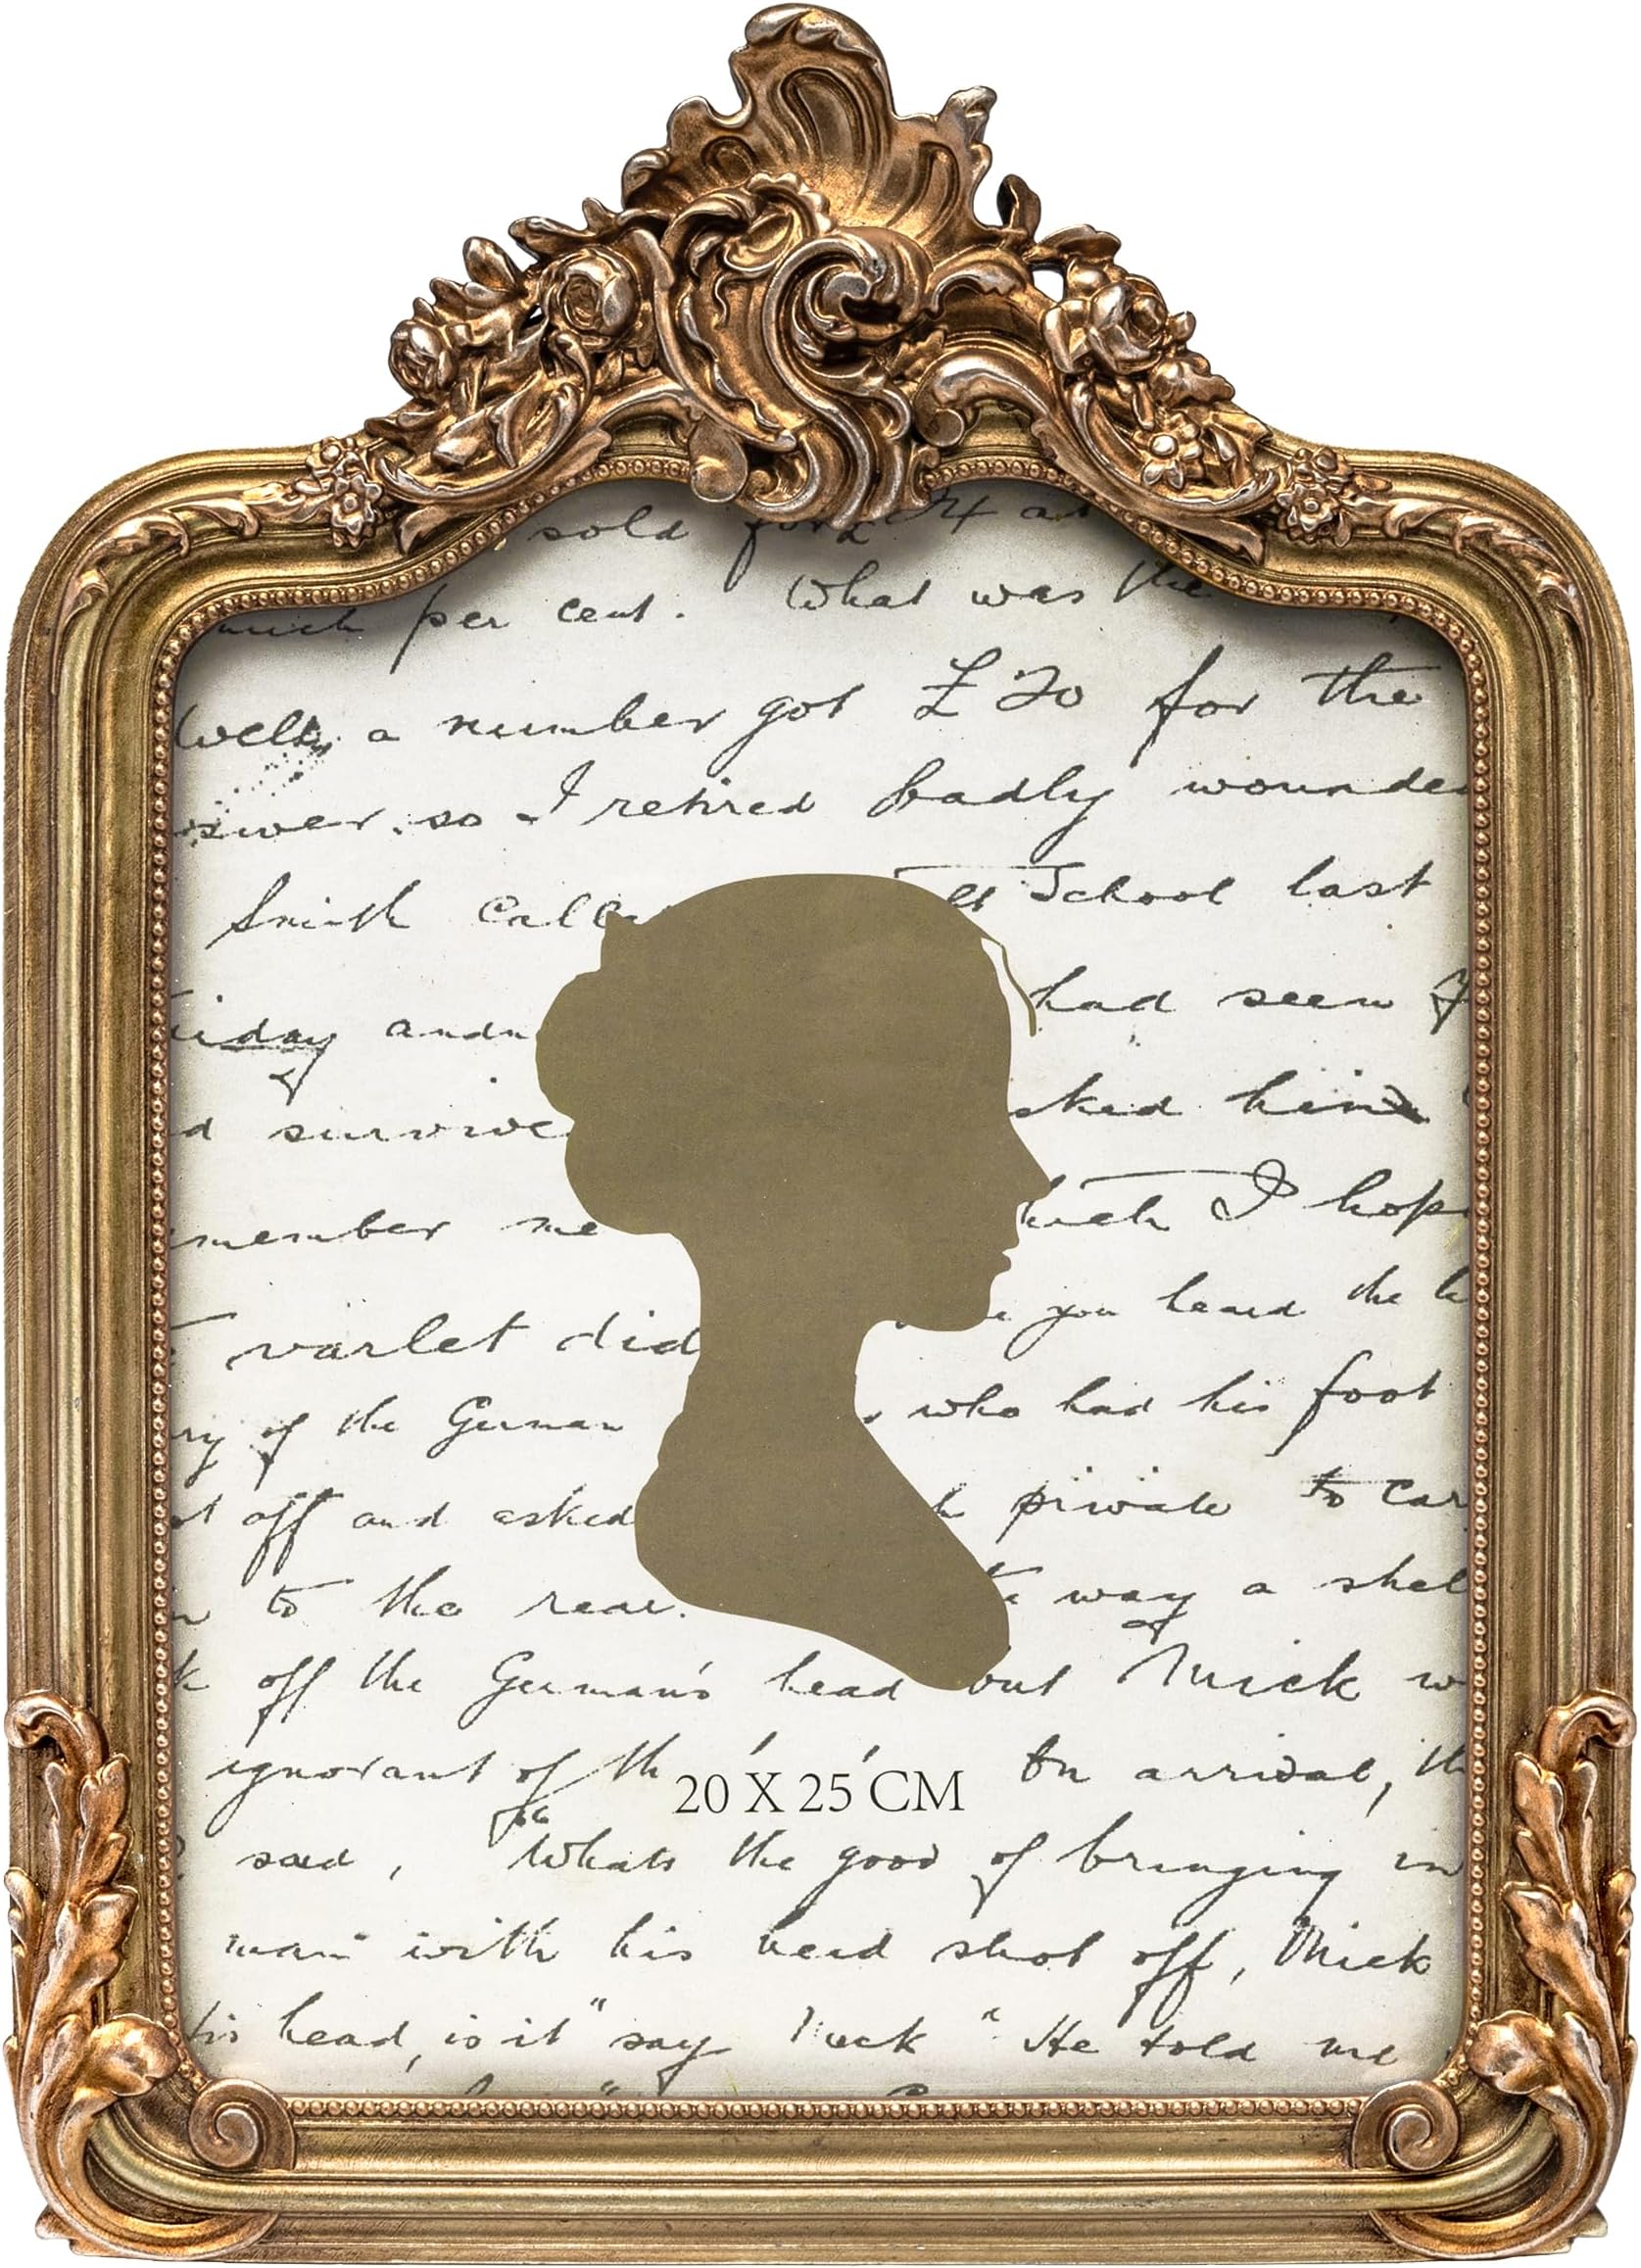 sold for
per cent. What was the
Well, a number got £20 for the
so I retired badly wounde
Smith Calle School last
had seen
d survive sked him
member me hich I hop
varlet did you heard the
ry of the German who had his foot
off and asked private to car
to the rear. way a shel
off the German's head but Mick w
ignorant of th On arrival, th
20 X 25 CM
said, "Whats the good of bringing in
man with his head shot off, Mick
his head, is it" say Mick " He told me